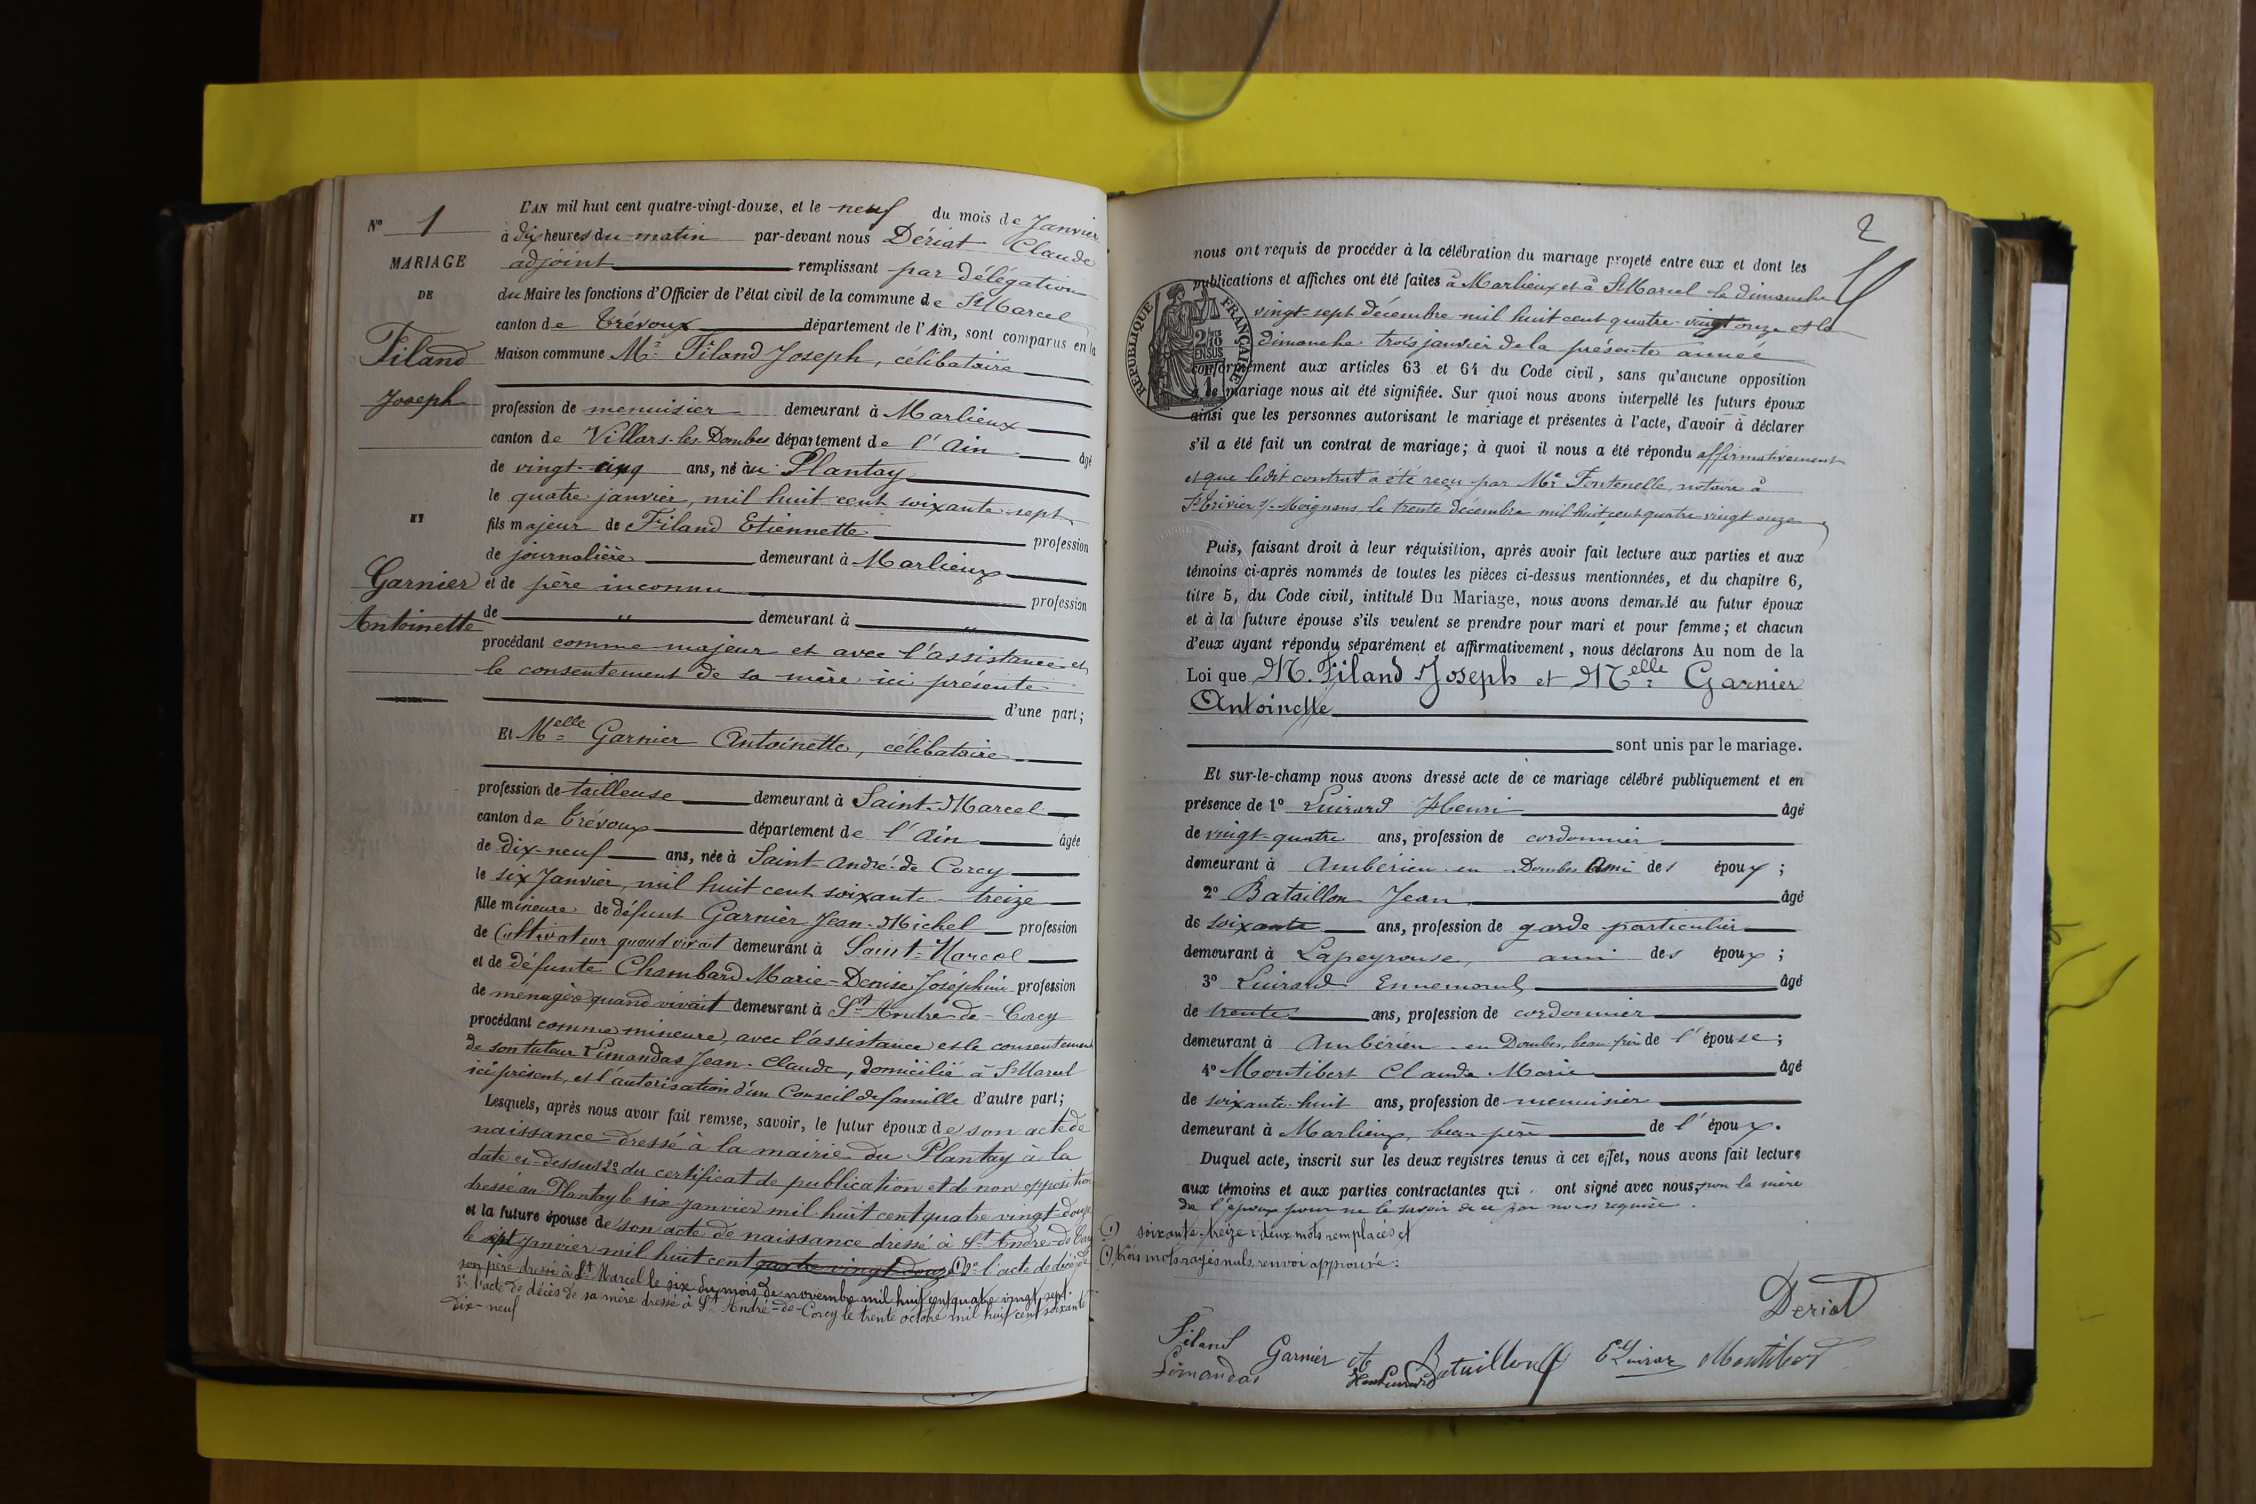 N° 1
MARIAGE
DE
Filand
Joseph
ET
Garnier
Antoinette
L'AN mil huit cent quatre-vingt-douze, et le neuf du mois de Janvier
à dix heures du matin par-devant nous Dériat Claude
adjoint remplissant par délégation
du Maire les fonctions d'Officier de l'état civil de la commune de St Marcel
canton de Trévoux département de l'Ain, sont comparus en la
Maison commune Mr Filand Joseph, célibataire
profession de menuisier demeurant à Marlieux
canton de Villars-les-Dombes département de l'Ain âgé
de vingt-cinq ans, né au Plantay
le quatre janvier, mil huit cent soixante-sept
fils majeur de Filand Etiennette profession
de journalière demeurant à Marlieux
et de père inconnu profession
de " demeurant à "
procédant comme majeur et avec l'assistance et
le consentement de sa mère ici présente
d'une part;
Et Melle Garnier Antoinette, célibataire
profession de tailleuse demeurant à Saint-Marcel
canton de Trévoux département de l'Ain âgée
de dix-neuf ans, née à Saint-André-de-Corcy
le six Janvier, mil huit cent soixante-treize
fille mineure de défunt Garnier Jean-Michel profession
de Cultivateur quand vivait demeurant à Saint-Marcel
et de défunte Chambard Marie-Denise Joséphine profession
de ménagère quand vivait demeurant à St André-de-Corcy
procédant comme mineure, avec l'assistance et le consentement
de son tuteur Limandas Jean-Claude, domicilié à St Marcel
ici présent, et l'autorisation d'un Conseil de famille d'autre part;
Lesquels, après nous avoir fait remise, savoir, le futur époux de son acte de
naissance dressé à la mairie du Plantay à la
date ci-dessus 2° du certificat de publication et de non opposition
dressé au Plantay le six janvier mil huit cent quatre vingt-douze
et la future épouse de son acte de naissance dressé à St André-de-Corcy
le sept janvier mil huit cent quatre vingt douze (1) 2° l'acte de décès de
son père dressé à St Marcel le six du mois de novembre mil huit cent quatre vingt sept.
3° l'acte de décès de sa mère dressé à St André-de-Corcy le trente octobre mil huit cent soixante
dix-neuf
2
nous ont requis de procéder à la célébration du mariage projeté entre eux et dont les
publications et affiches ont été faites à Marlieux et à St Marcel le dimanche
vingt-sept décembre mil huit cent quatre-vingt onze et le
dimanche trois janvier de la présente année
conformément aux articles 63 et 64 du Code civil, sans qu'aucune opposition
à ce mariage nous ait été signifiée. Sur quoi nous avons interpellé les futurs époux
ainsi que les personnes autorisant le mariage et présentes à l'acte, d'avoir à déclarer
s'il a été fait un contrat de mariage; à quoi il nous a été répondu affirmativement
et que ledit contrat a été reçu par Me Fontenelle, notaire à
St Trivier s/ Moignans le trente décembre mil huit cent quatre vingt onze
RÉPUBLIQUE FRANÇAISE
2/10 EN SUS
Puis, faisant droit à leur réquisition, après avoir fait lecture aux parties et aux
témoins ci-après nommés de toutes les pièces ci-dessus mentionnées, et du chapitre 6,
titre 5, du Code civil, intitulé Du Mariage, nous avons demandé au futur époux
et à la future épouse s'ils veulent se prendre pour mari et pour femme; et chacun
d'eux ayant répondu séparément et affirmativement, nous déclarons Au nom de la
Loi que M. Filand Joseph et Melle Garnier
Antoinette
sont unis par le mariage.
Et sur-le-champ nous avons dressé acte de ce mariage célébré publiquement et en
présence de 1° Luirard Henri âgé
de vingt-quatre ans, profession de cordonnier
demeurant à Ambérieu en Dombes Ami des époux;
2° Bataillon Jean âgé
de soixante ans, profession de garde particulier
demeurant à Lapeyrouse, ami des époux;
3° Luirard Ennemond âgé
de trente ans, profession de cordonnier
demeurant à Ambérieu-en Dombes, beau-frère de l'épouse;
4° Montibert Claude Marie âgé
de soixante-huit ans, profession de menuisier
demeurant à Marlieux, beau-père de l'époux.
Duquel acte, inscrit sur les deux registres tenus à cet effet, nous avons fait lecture
aux témoins et aux parties contractantes qui ont signé avec nous, non la mère
de l'époux pour ne le savoir de ce par nous requise.
(1) soixante-treize: deux mots remplacés et
(1) trois mots rayés nuls, renvoi approuvé:
Deriat
Filand Garnier at Bataillon E. Luirar Montibert
Limandas Henri Luirard